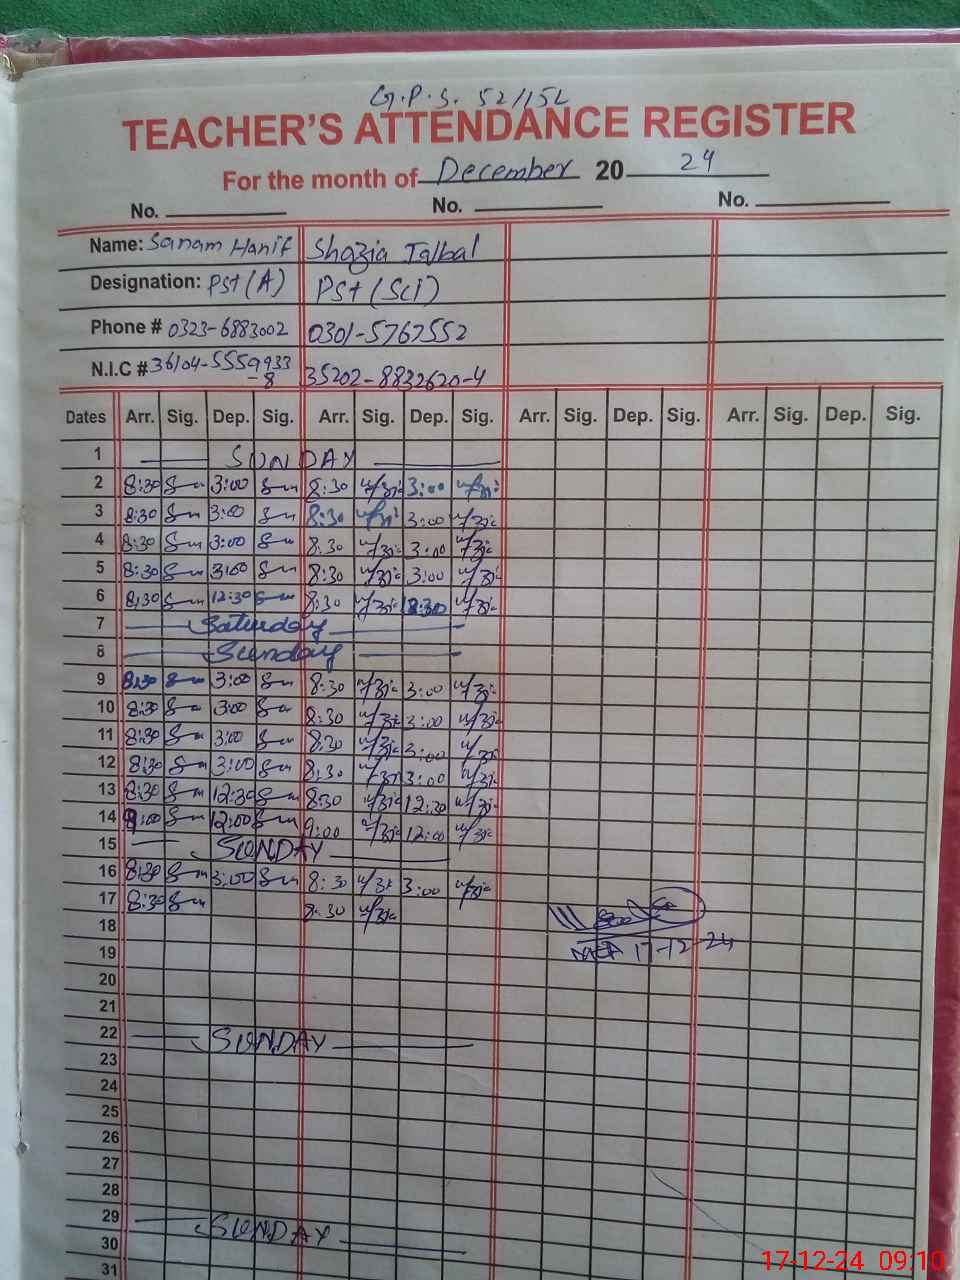 G.P.S. 52/15L
TEACHER'S ATTENDANCE REGISTER
For the month of December 20 24
No. No. No.
Name: Sanam Hanif Shazia Iqbal
Designation: PST (A) PST (Sci)
Phone # 0323-6883002 0301-5767552
N.I.C # 36104-5559933-8 35202-8832620-4
Dates Arr. Sig. Dep. Sig. Arr. Sig. Dep. Sig. Arr. Sig. Dep. Sig. Arr. Sig. Dep. Sig.
1 SUNDAY
2 8:30 3:00 8:30 3:00
3 8:30 3:00 8:30 3:00
4 8:30 3:00 8:30 3:00
5 8:30 3:00 8:30 3:00
6 8:30 12:30 8:30
7 Saturday
8 Sunday
9 8:30 3:00 8:30 3:00
10 8:30 3:00 8:30 3:00
11 8:30 3:00 8:30 3:00
12 8:30 3:00 8:30 3:00
13 8:30 12:30 8:30 12:30
14 9:00 12:00 9:00 12:00
15 SUNDAY
16 8:30 3:00 8:30 3:00
17 8:30 8:30
18
19 17-12-24
20
21
22 SUNDAY
23
24
25
26
27
28
29 SUNDAY
30
31
17-12-24 09:10